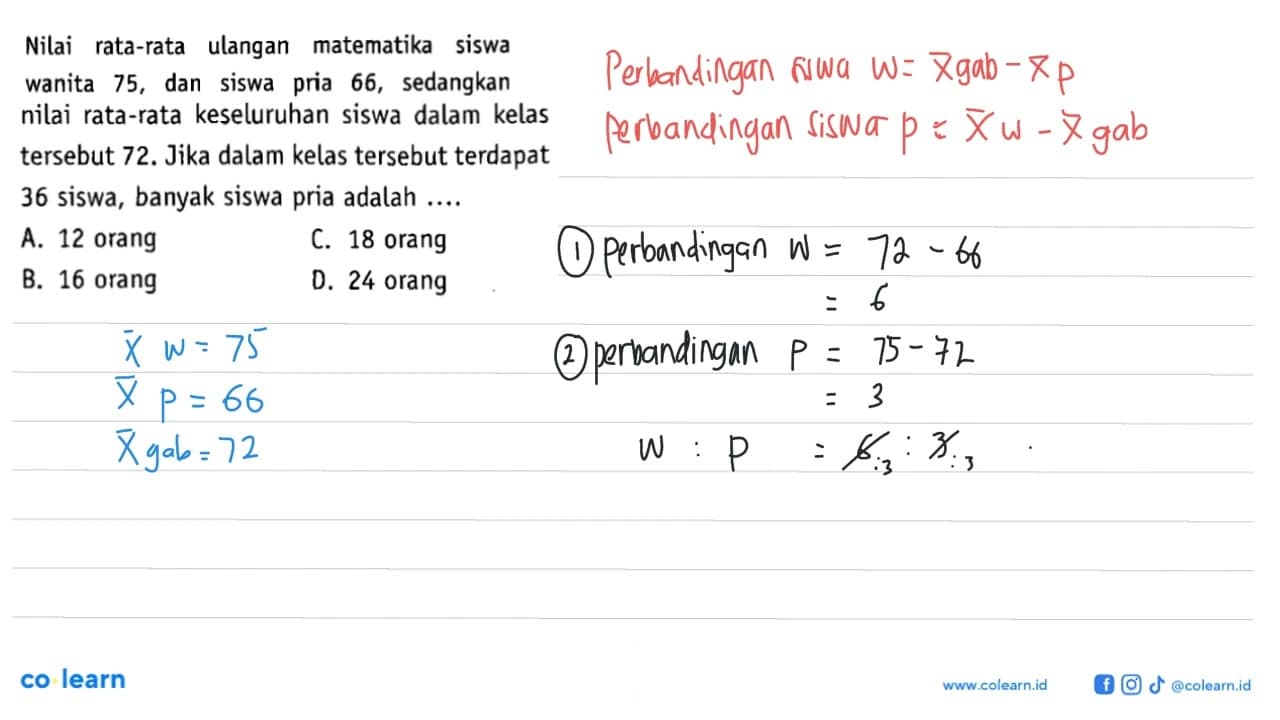 Nilai rata-rata ulangan matematika siswa
wanita 75, dan siswa pria 66, sedangkan
nilai rata-rata keseluruhan siswa dalam kelas
tersebut 72. Jika dalam kelas tersebut terdapat
36 siswa, banyak siswa pria adalah ....
A. 12 orang C. 18 orang
B. 16 orang D. 24 orang
x̄ w = 75
x̄ p = 66
x̄ gab = 72
Perbandingan siswa w = x̄ gab - x̄ p
Perbandingan siswa p = x̄ w - x̄ gab
① perbandingan W = 72 - 66
= 6
② perbandingan P = 75 - 72
= 3
W : P = 6:3 : 3:3
co learn
www.colearn.id @colearn.id